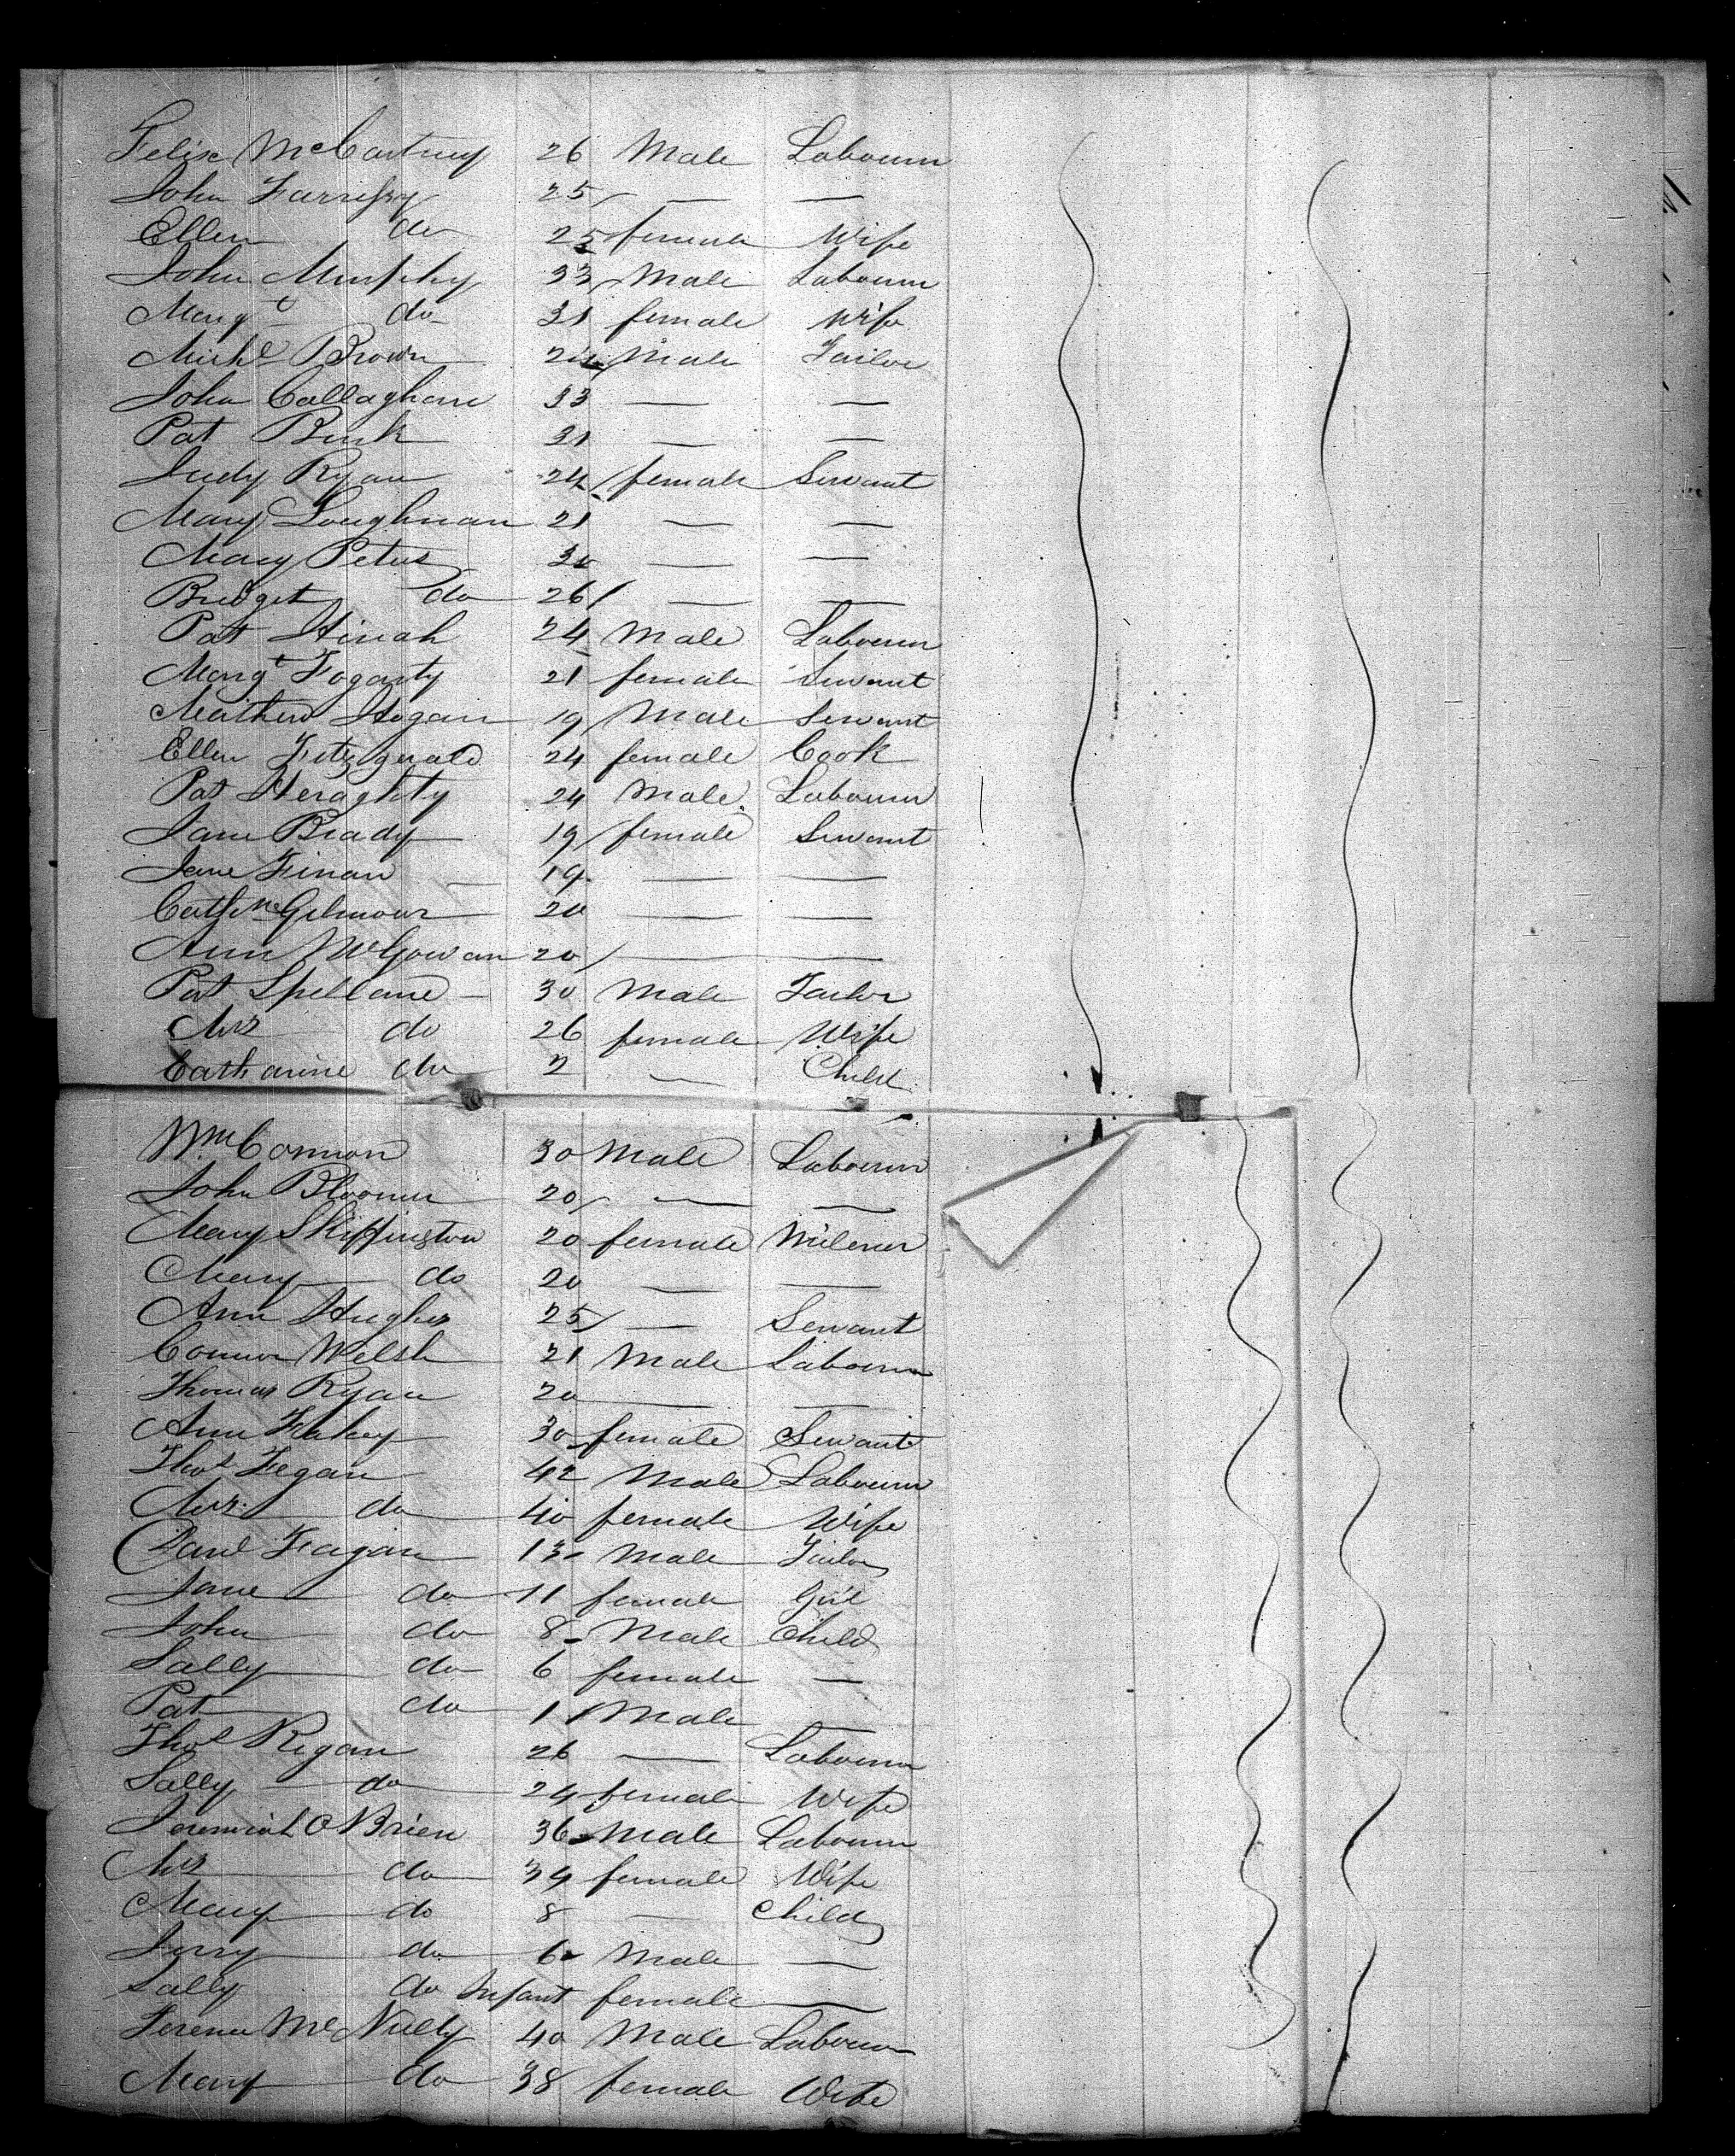 Felix McCartney 26 Male Labourer
John Farrelly 25 — —
Ellen do 25 female Wife
John Murphy 33 Male Labourer
Margt do 31 female Wife
Michl Brown 24 Male Tailor
John Callaghan 33 — —
Pat Burk 31 — —
Judy Ryan 24 female Servant
Mary Loughman 21 — —
Mary Peters 30 — —
Bridget do 26 — —
Pat Hinah 24 Male Labourer
Margt Fogarty 21 female Servant
Mathew Hogan 19 Male Servant
Ellen Fitzgerald 24 female Cook
Pat Heraghty 24 Male Labourer
Jane Brady 19 female Servant
Jane Finan — 19 — —
Cathne Gilmour 20 — —
Ann McGowan 20 — —
Pat Spellane 30 Male Tailor
Mrs do 26 female Wife
Catharine do 2 — Child
Wm Connon 30 Male Labourer
John Bloomer 20 — —
Mary Skiffington 20 female Milener
Mary do 20 — —
Ann Hughes 25 — Servant
Connor Welsh 21 Male Labourer
Thomas Ryan 20 — —
Ann Fahey 30 female Servant
Thos Fegan 42 Male Labourer
Mrs do 40 female Wife
Danl Feagan 13 Male Tailor
Jane do 11 female Girl
John do 8 Male Child
Sally do 6 female —
Pat do 1 Male —
Thos Regan 26 — Labourer
Sally do 24 female Wife
Jeremiah O Brien 36 Male Labourer
Mrs do 34 female Wife
Mary do 8 — Child
Jerry do 6 Male —
Sally do Infant female —
Terence McNully 40 Male Labourer
Mary do 38 female Wife